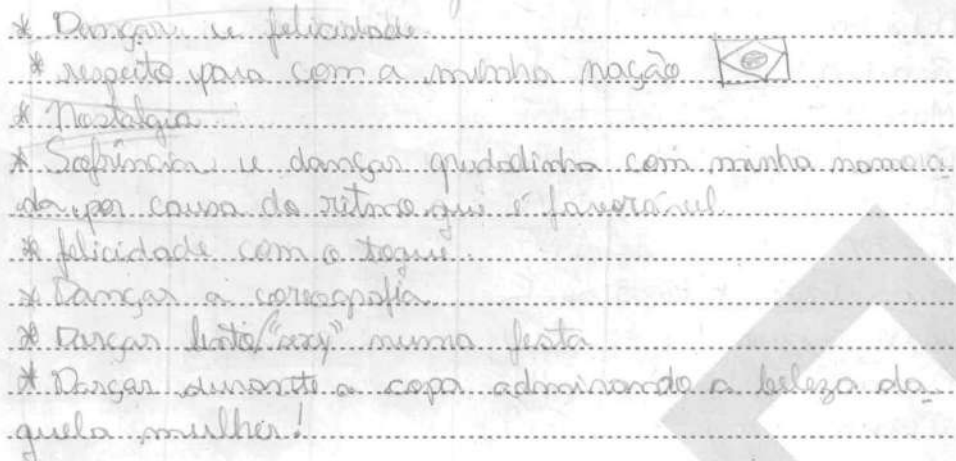 * Dançar e felicidade
* respeito para com a minha nação
* Nostalgia
* Sofrência e dançar grudadinho com minha namora
da, por causa do ritmo que é favorável
* felicidade com o toque.
* Dançar a coreografia
* Dançar lento/"sexy" numa festa
* Dançar durante a copa admirando a beleza da
quela mulher!